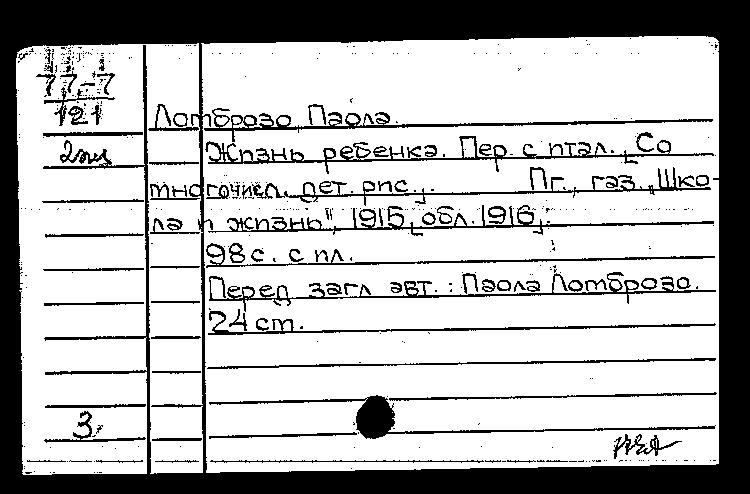 77-7
121
Ломброзо, Паола.
2экз
Жизнь ребенка. Пер. с итал. [Со
многочисл. дет. рис.]. Пг., газ. „Шко-
ла и жизнь", 1915 [обл. 1916].
98 с. с ил.
Перед загл. авт.: Паола Ломброзо.
24 cm.
3.